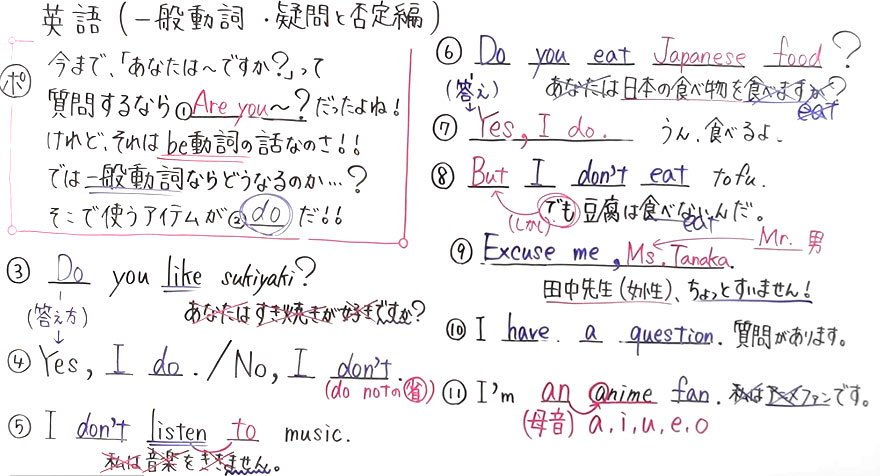 英語(一般動詞・疑問と否定編)
ポ
今まで、「あなたは〜ですか?」って
質問するなら①Are you〜?だったよね!
けれど、それはbe動詞の話なのさ!!
では一般動詞ならどうなるのか…?
そこで使うアイテムが②doだ!!
③ Do you like sukiyaki?
(答え方) あなたはすき焼きが好きですか?
④ Yes, I do. / No, I don't.
(do notの省)
⑤ I don't listen to music.
私は音楽をききません。
⑥ Do you eat Japanese food?
(答え) あなたは日本の食べ物を食べますか?
eat
⑦ Yes, I do. うん、食べるよ。
⑧ But I don't eat tofu.
(しかし) でも豆腐は食べないんだ。
eat
Mr. 男
⑨ Excuse me, Ms. Tanaka.
田中先生(女性)、ちょっとすいません!
⑩ I have a question. 質問があります。
⑪ I'm an anime fan. 私はアニメファンです。
(母音) a, i, u, e, o